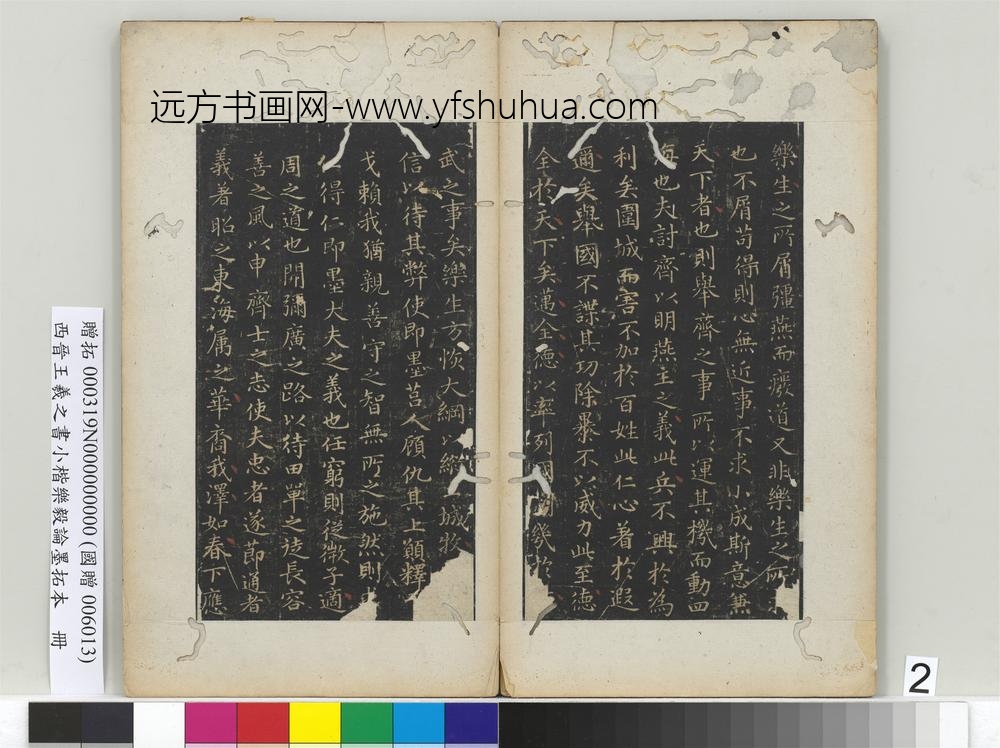 远方书画网-www.yfshuhua.com
樂生之所屑彊燕而癈道又非樂生之所
也不屑苟得則心無近事不求小成斯意無
天下者也則舉齊之事所以運其機而動四
海也夫討齊以明燕主之義此兵不興於為
利矣圍城而害不加於百姓此仁心著於遐
邇矣舉國不謀其功除暴不以威力此至德
全於天下矣邁全德以率列國 幾於
武之事矣樂生方恢大綱以縱城收
信以待其弊使即墨莒人顧仇其上願釋
戈賴我猶親善守之智無所之施然則
得仁即墨大夫之義也任窮則從微子適
周之道也開彌廣之路以待田單之徒長容
善之風以申齊士之志使夫忠者遂即道者
義著昭之東海属之華裔我澤如春下應
贈拓 000319N000000000 (國贈 006013)
西晉王羲之書小楷樂毅論墨拓本 冊
2